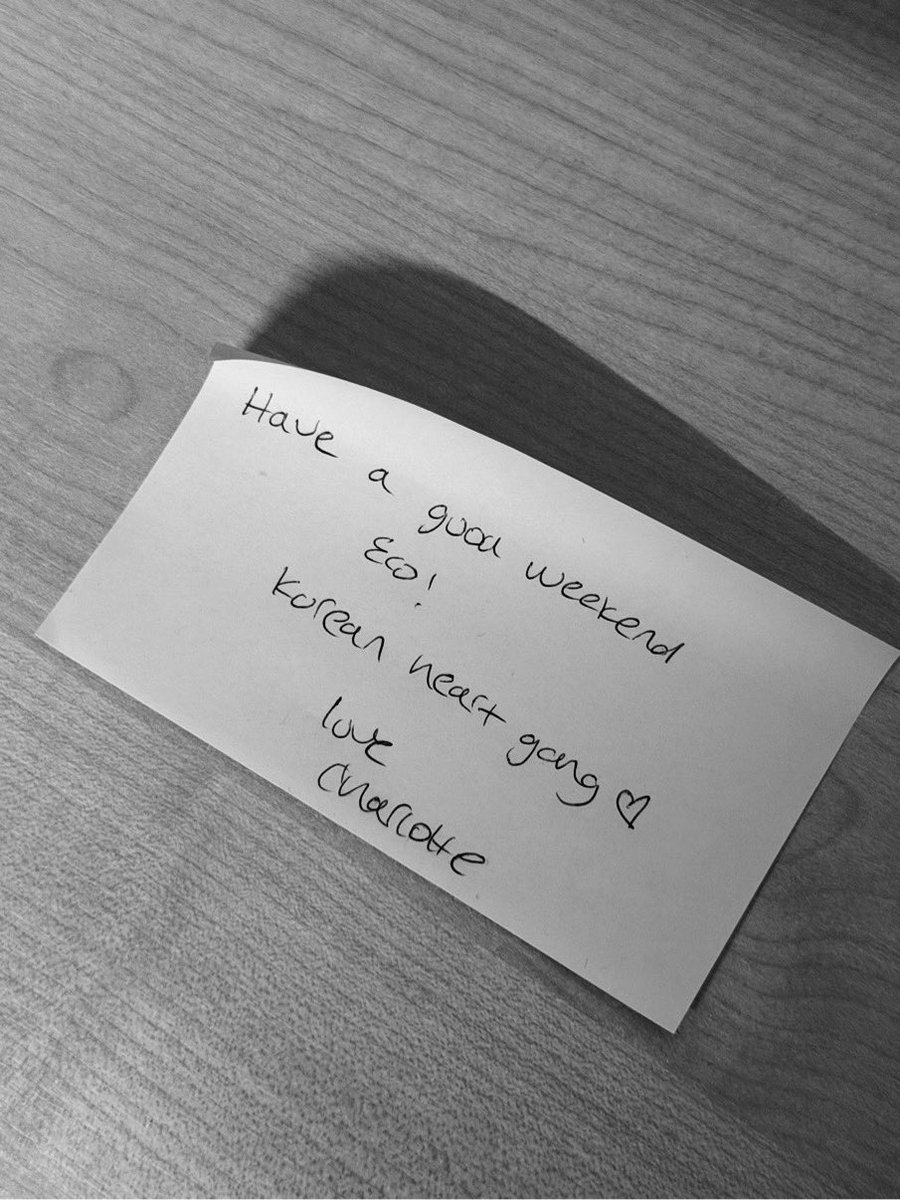 Have a good weekend
Eco!
Korean heart gang ♡
love
Charlotte